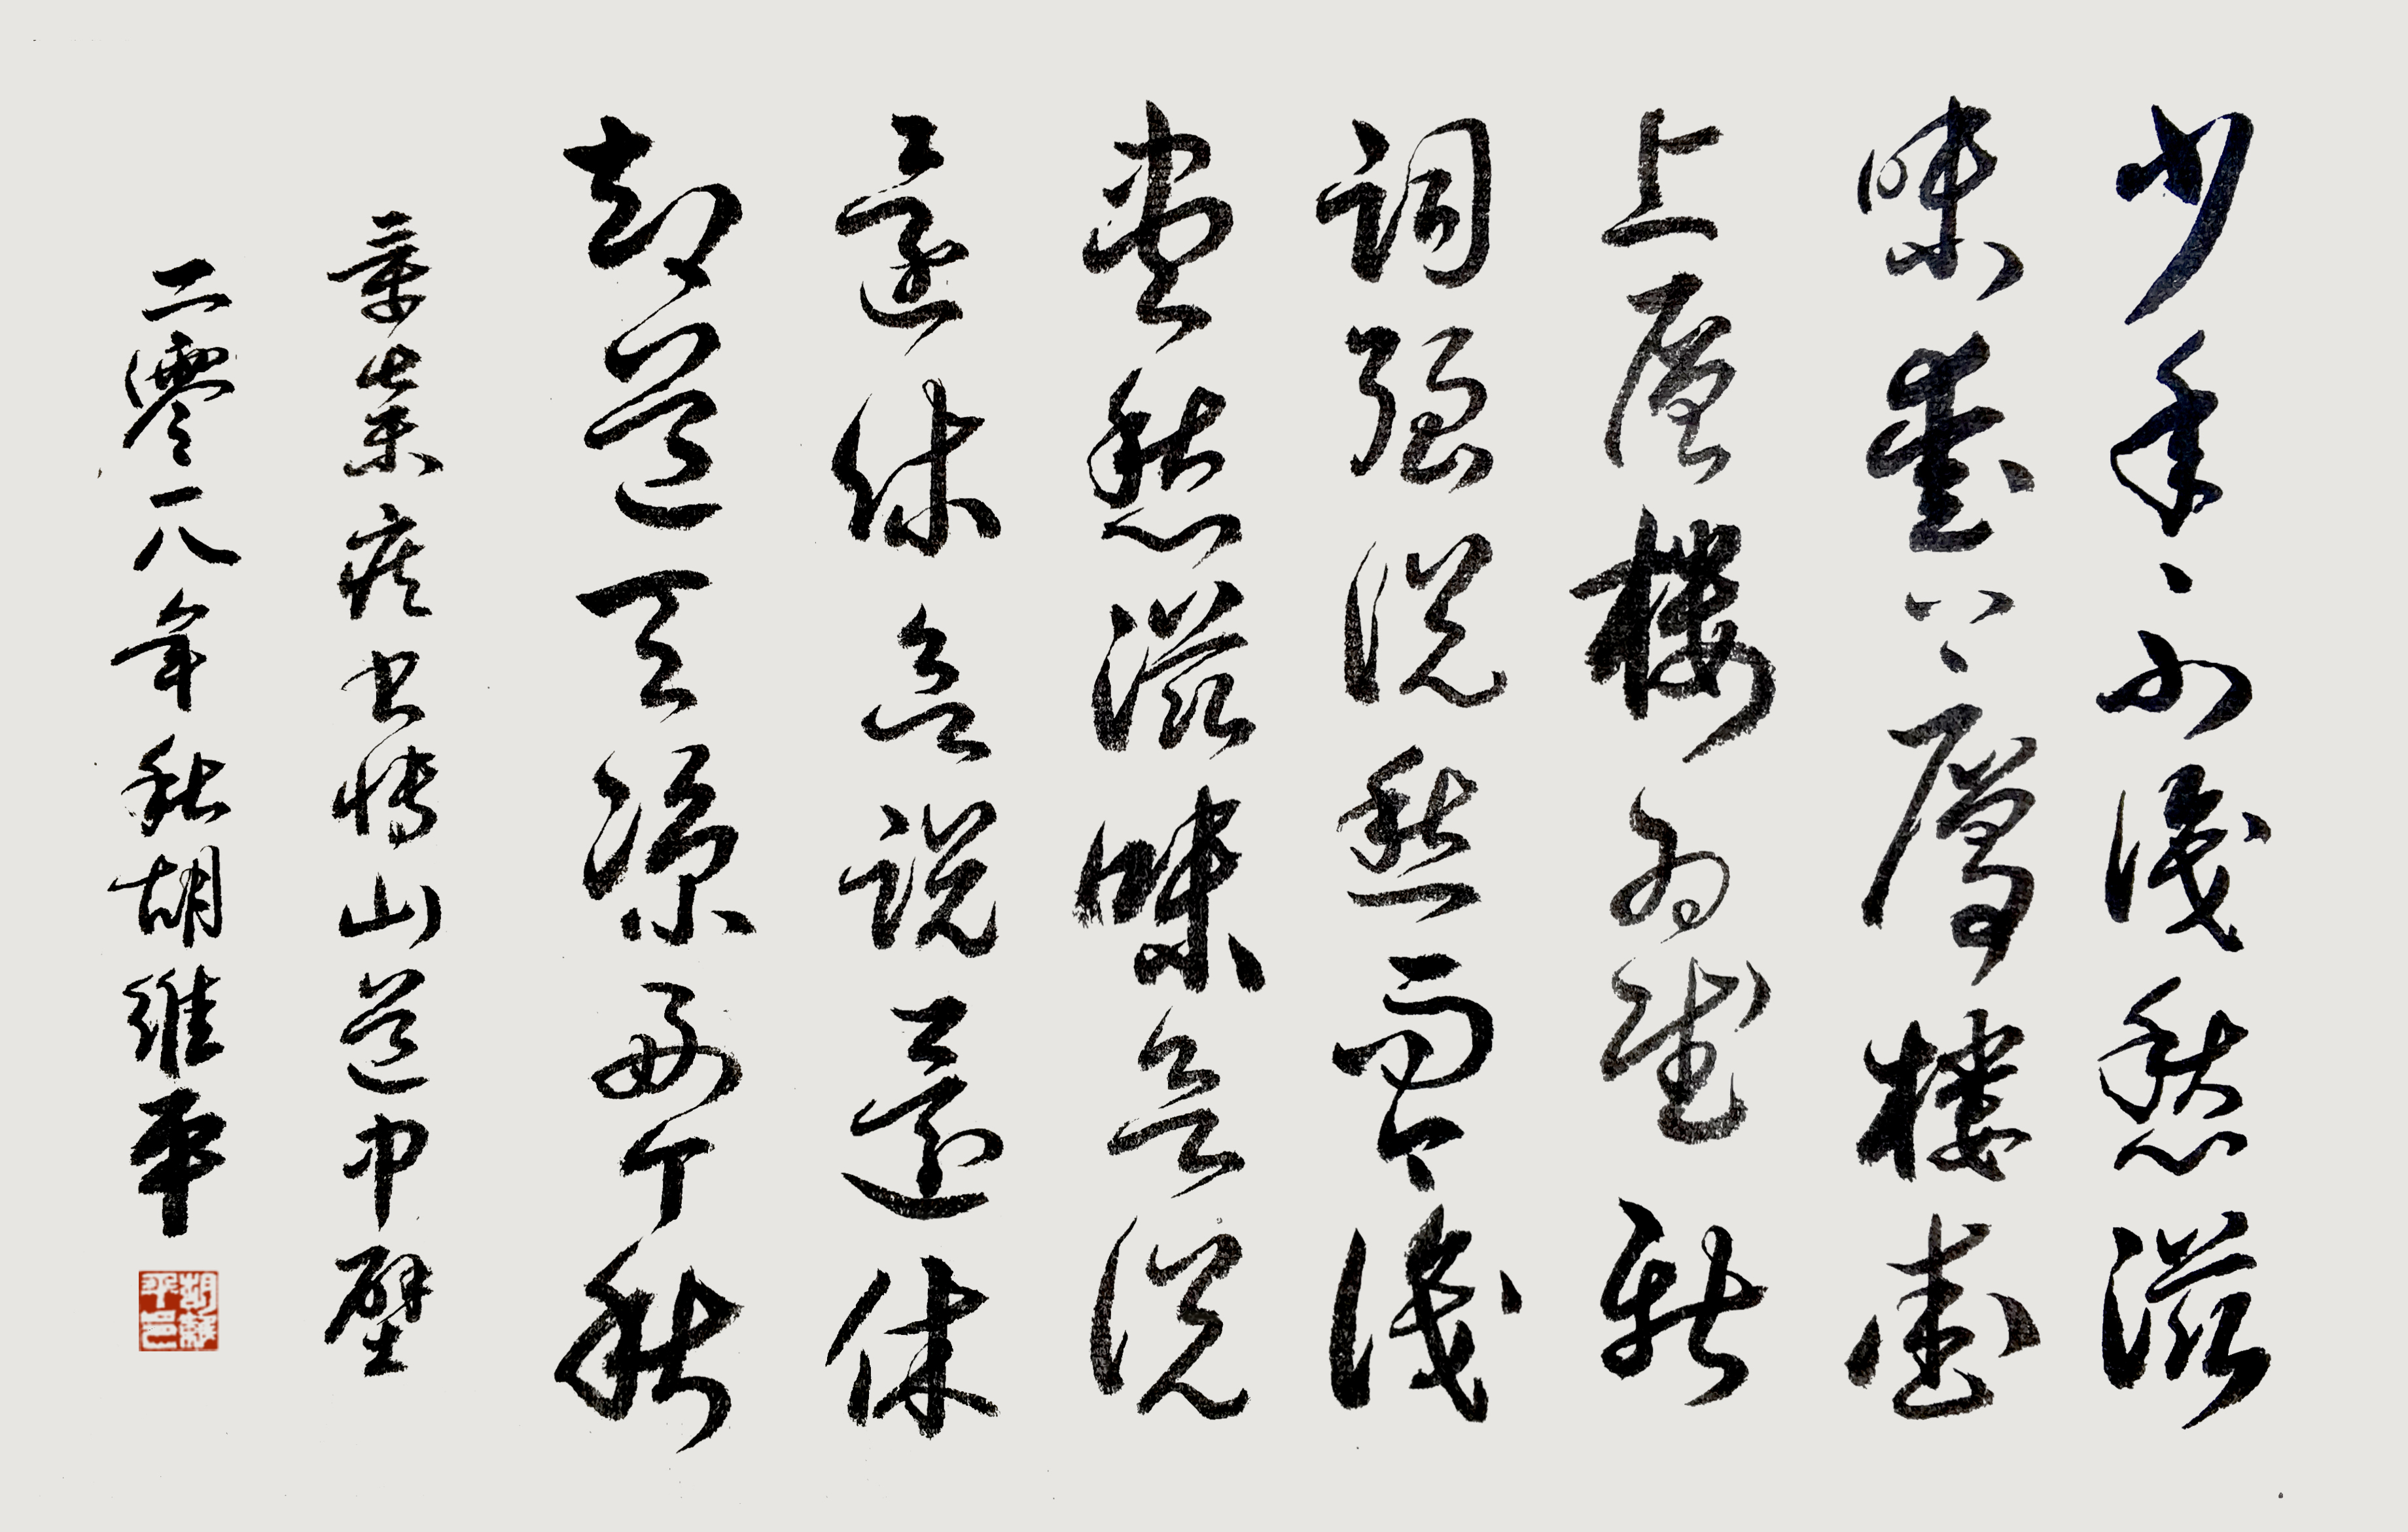 少年不識愁滋
味愛上層樓愛
上層樓為賦新
詞強說愁而今識
盡愁滋味欲說
還休欲說還休
却道天涼好个秋
辛棄疾書博山道中壁
二零一八年秋胡維平
胡維平印